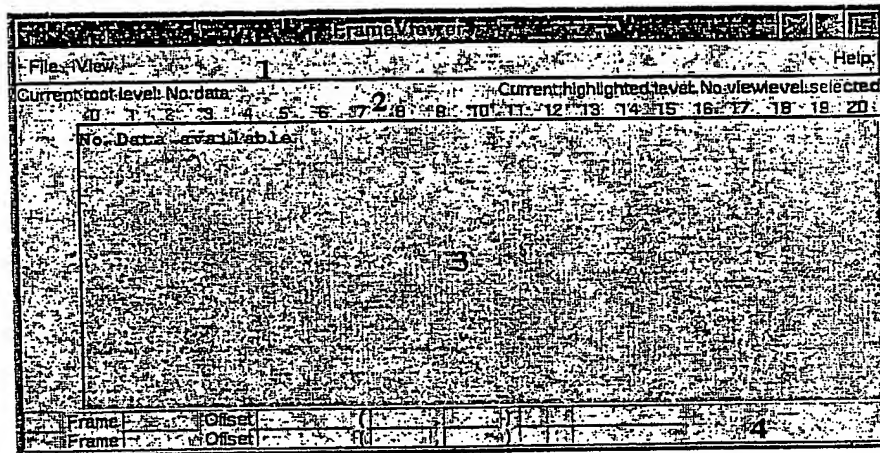 FrameViewer
File View 1 Help
Current root level: No data Current highlighted level: No viewlevel selected
2
0 1 2 3 4 5 6 7 8 9 10 11 12 13 14 15 16 17 18 19 20
No Data available
3
Frame Offset ( )
4
Frame Offset ( )